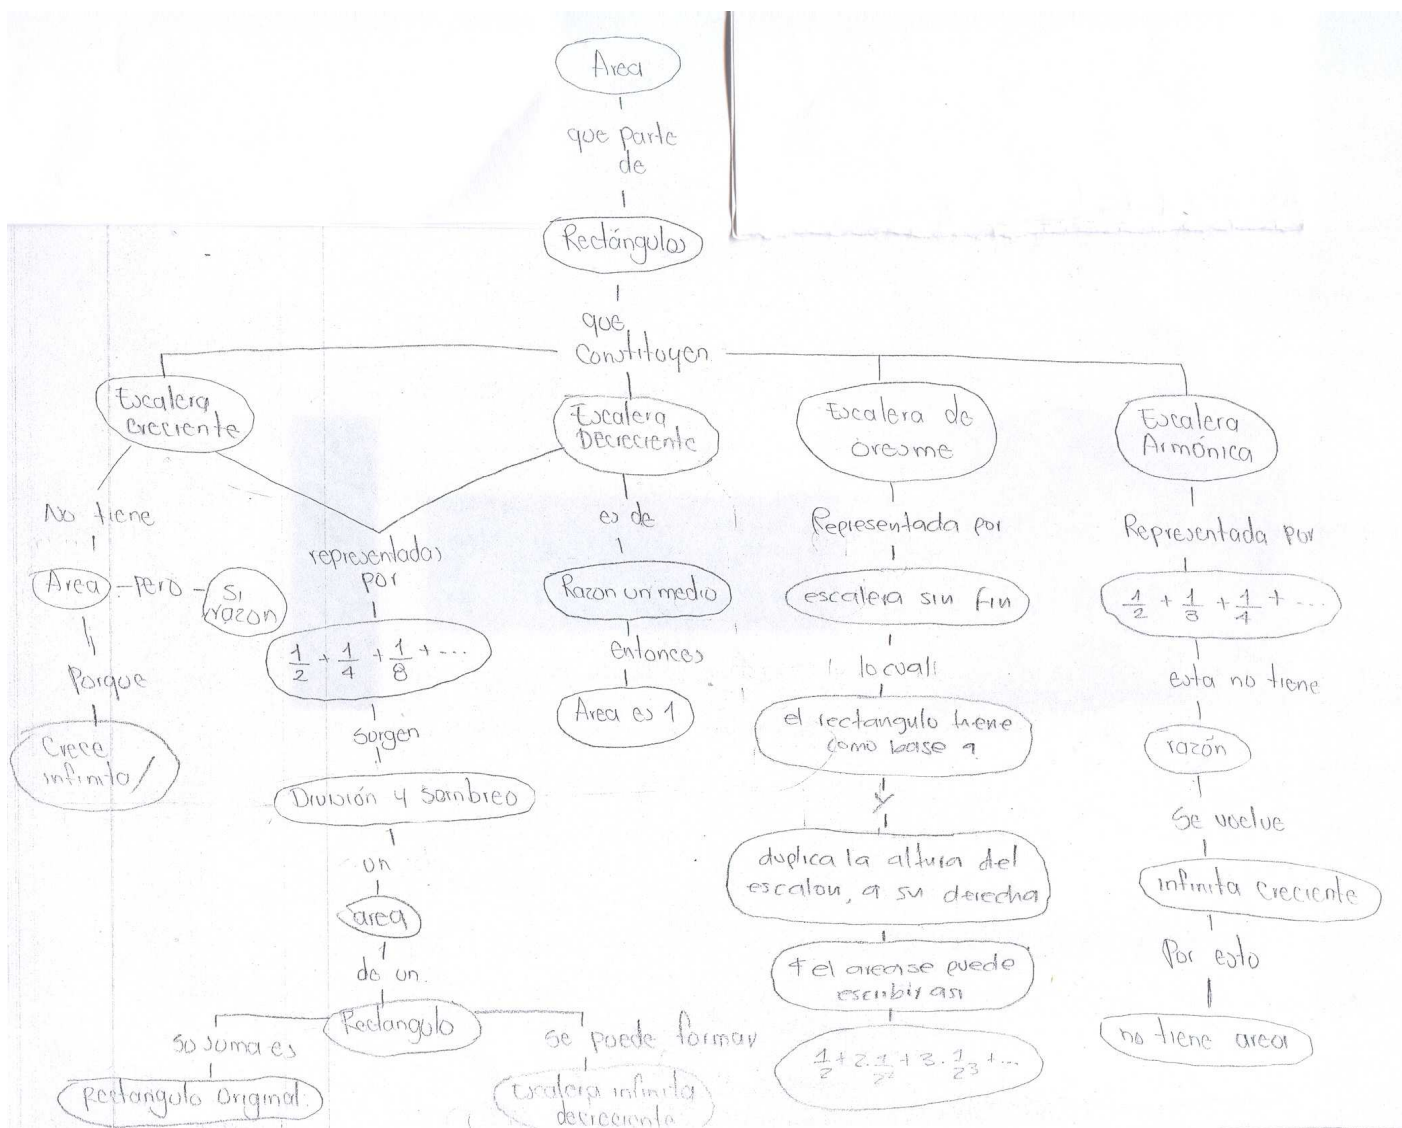 Area
que parte
de
Rectángulos
que
Constituyen
Escalera
Creciente
No tiene
Area
pero
Si
razon
Porque
Crece
infinita/
Escalera
Decreciente
representadas
por
1/2 + 1/4 + 1/8 + ...
Surgen
División y sombreo
un
area
de un
Rectangulo
su suma es
Rectangulo Original
Se puede formar
Escalera infinita
decreciente
es de
Razon un medio
entonces
Area es 1
Escalera de
oresme
Representada por
escalera sin fin
lo cual:
el rectangulo tiene
como base a
duplica la altura del
escalon, a su derecha
y el area se puede
escribir asi
1/2 + 2·1/2² + 3·1/2³ + ...
Escalera
Armónica
Representada por
1/2 + 1/3 + 1/4 + ...
esta no tiene
razón
Se vuelve
infinita creciente
Por esto
no tiene area